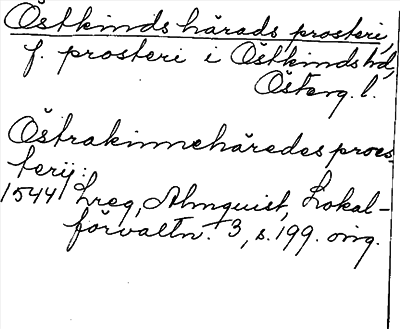 Östkinds härads prosteri,
f. prosteri i Östkinds hd,
Österg. l.
Östrakinnehäredes proes-
terij:
1544 Lreg, Almquist, Lokal-
förvaltn. 3, s. 199. orig.